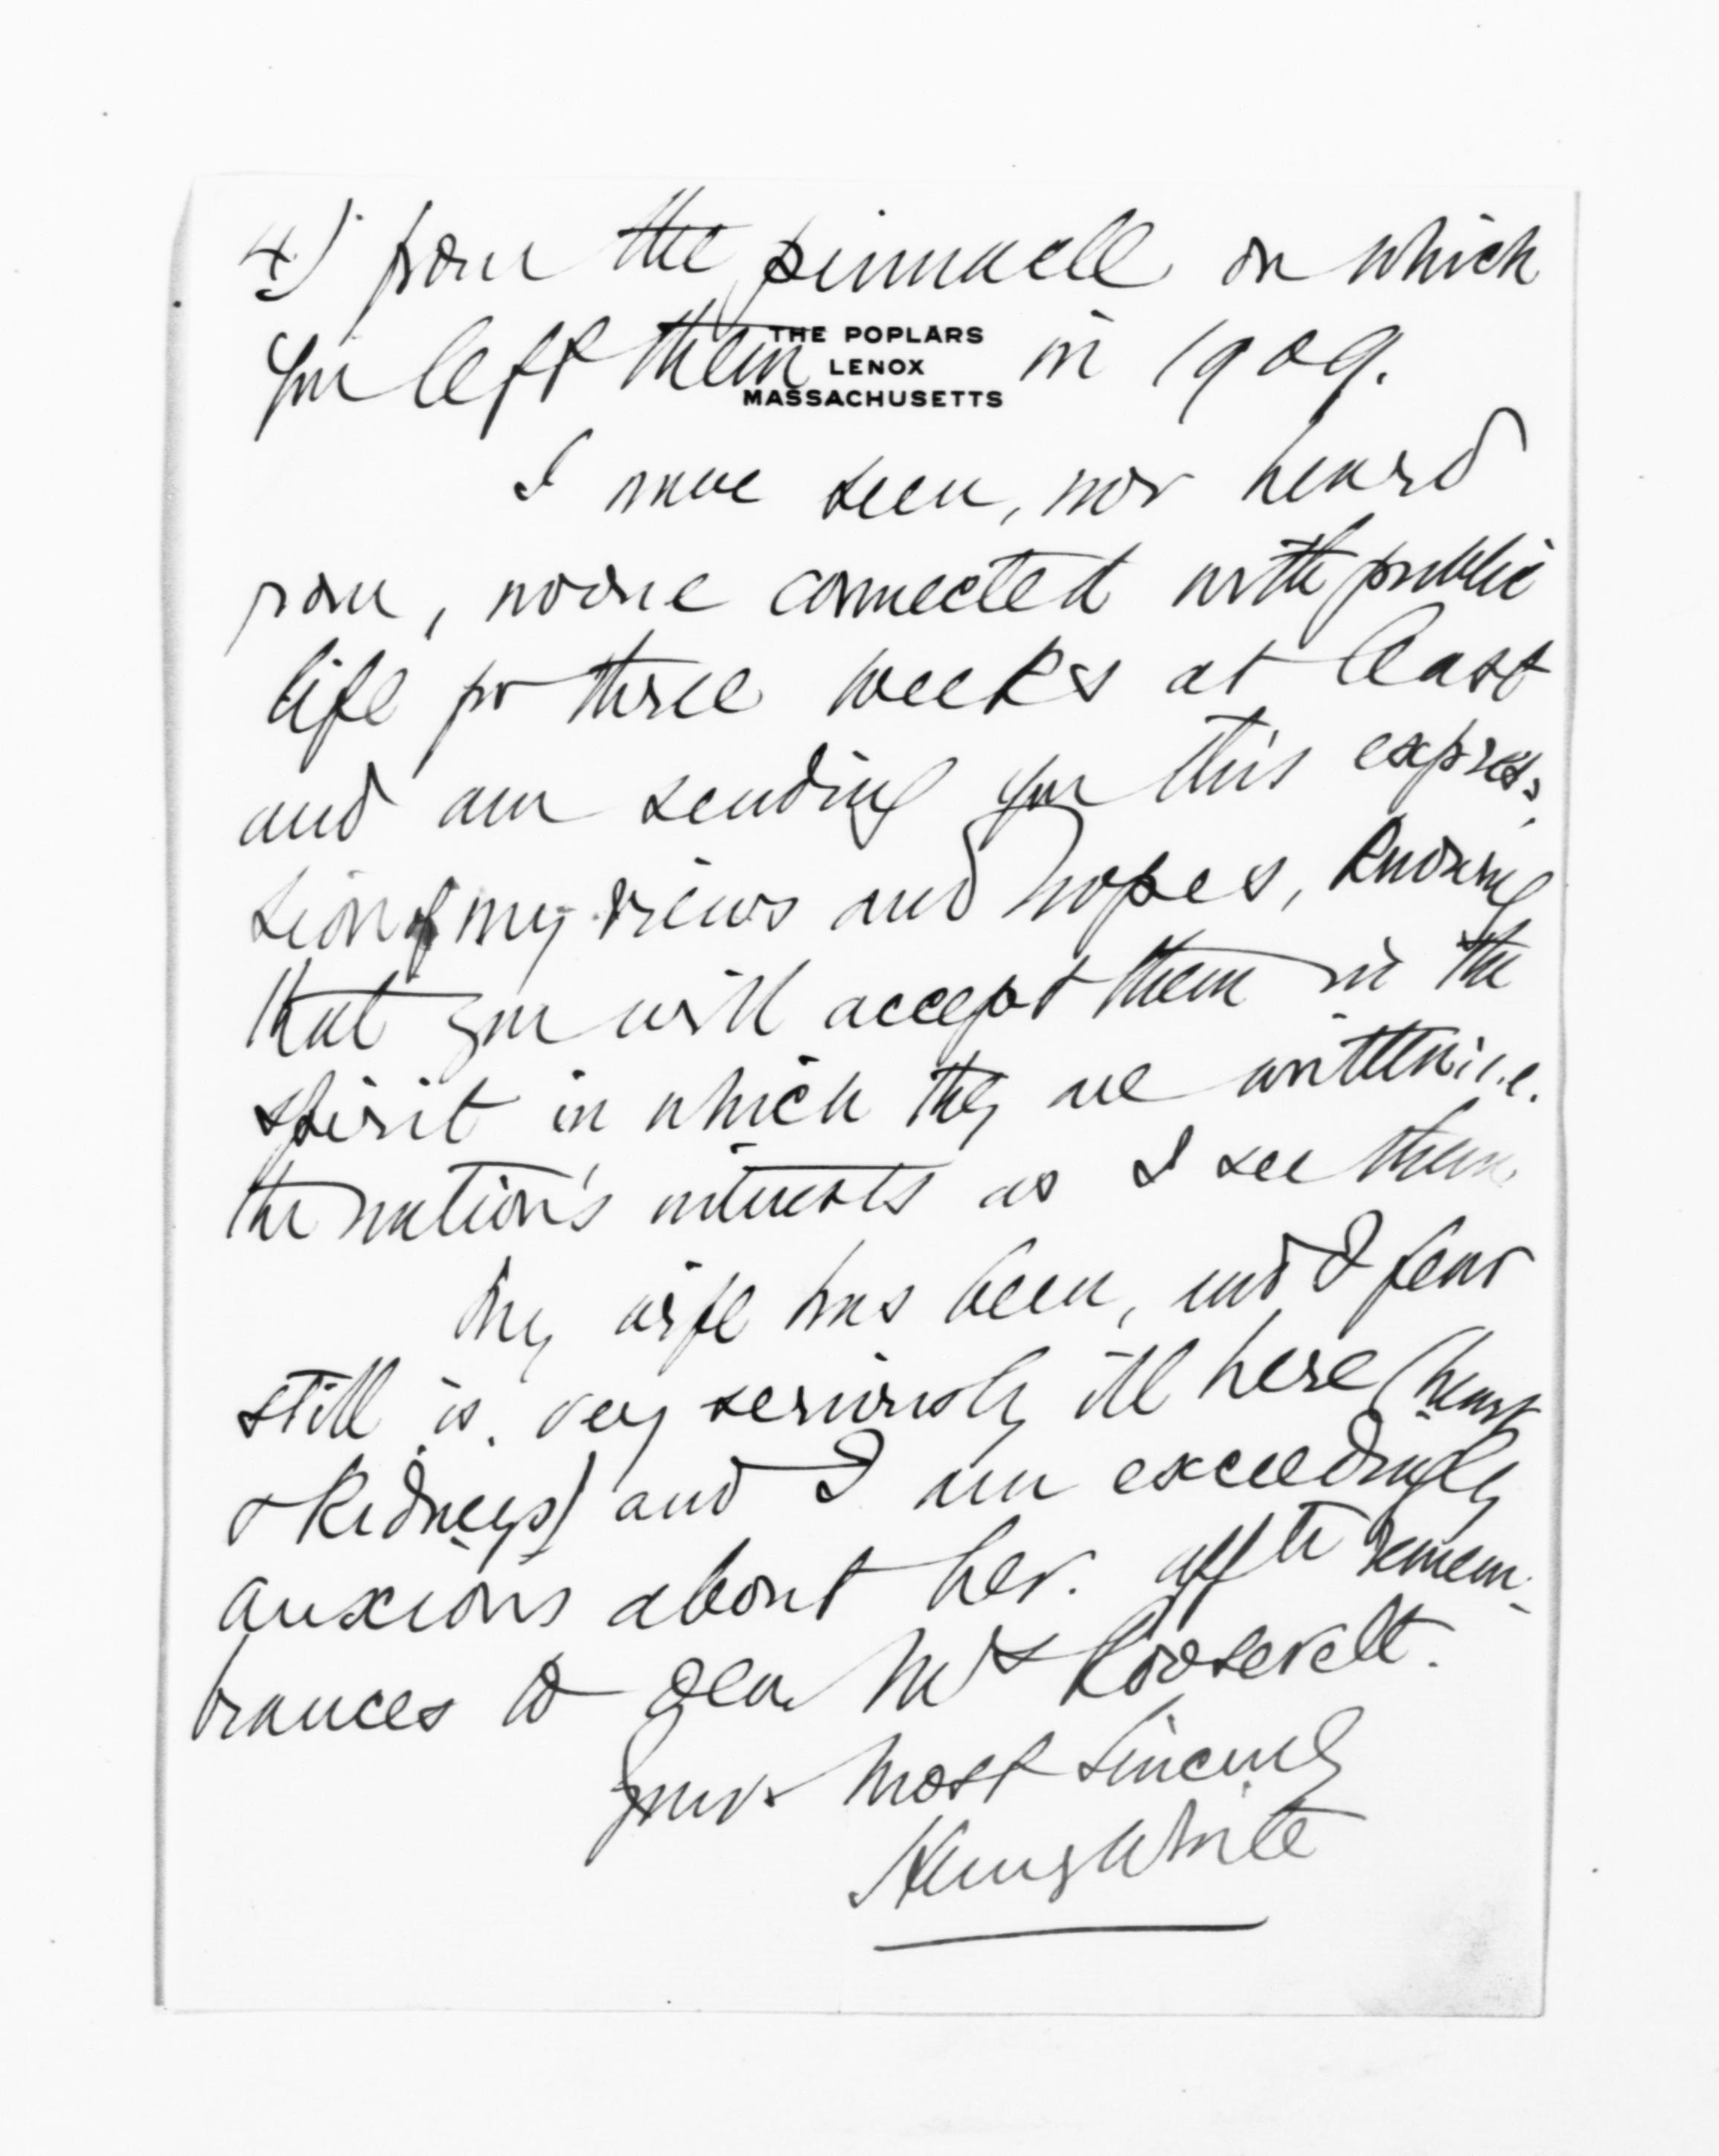 4) from the pinnacle on which
THE POPLARS
LENOX
MASSACHUSETTS
you left them in 1909.
I have seen, nor heard
from, no one connected with public
life for three weeks at least
and am sending you this expres-
sion of my views and hopes, knowing
that you will accept them in the
spirit in which they are written i.e.
the nation's interests as I see them
My wife has been, and I fear
still is very seriously ill here (heart
& kidneys) and I am exceedingly
anxious about her. affte remem-
brances to dear Mrs Roosevelt.
Yours most sincerely
Henry White